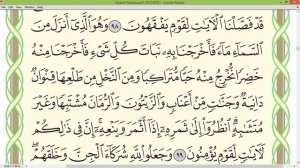 Mushaf Madinah.pdf (SECURED) - Adobe Reader
قَدْ فَصَّلْنَا ٱلْءَايَٰتِ لِقَوْمٍ يَفْقَهُونَ ٩٨ وَهُوَ ٱلَّذِىٓ أَنزَلَ مِنَ
ٱلسَّمَآءِ مَآءً فَأَخْرَجْنَا بِهِۦ نَبَاتَ كُلِّ شَىْءٍ فَأَخْرَجْنَا مِنْهُ
خَضِرًا نُّخْرِجُ مِنْهُ حَبًّا مُّتَرَاكِبًا وَمِنَ ٱلنَّخْلِ مِن طَلْعِهَا قِنْوَانٌ
دَانِيَةٌ وَجَنَّٰتٍ مِّنْ أَعْنَابٍ وَٱلزَّيْتُونَ وَٱلرُّمَّانَ مُشْتَبِهًا وَغَيْرَ
مُتَشَٰبِهٍ ۗ ٱنظُرُوٓا۟ إِلَىٰ ثَمَرِهِۦٓ إِذَآ أَثْمَرَ وَيَنْعِهِۦٓ ۚ إِنَّ فِى ذَٰلِكُمْ
لَءَايَٰتٍ لِّقَوْمٍ يُؤْمِنُونَ ٩٩ وَجَعَلُوا۟ لِلَّهِ شُرَكَآءَ ٱلْجِنَّ وَخَلَقَهُمْ